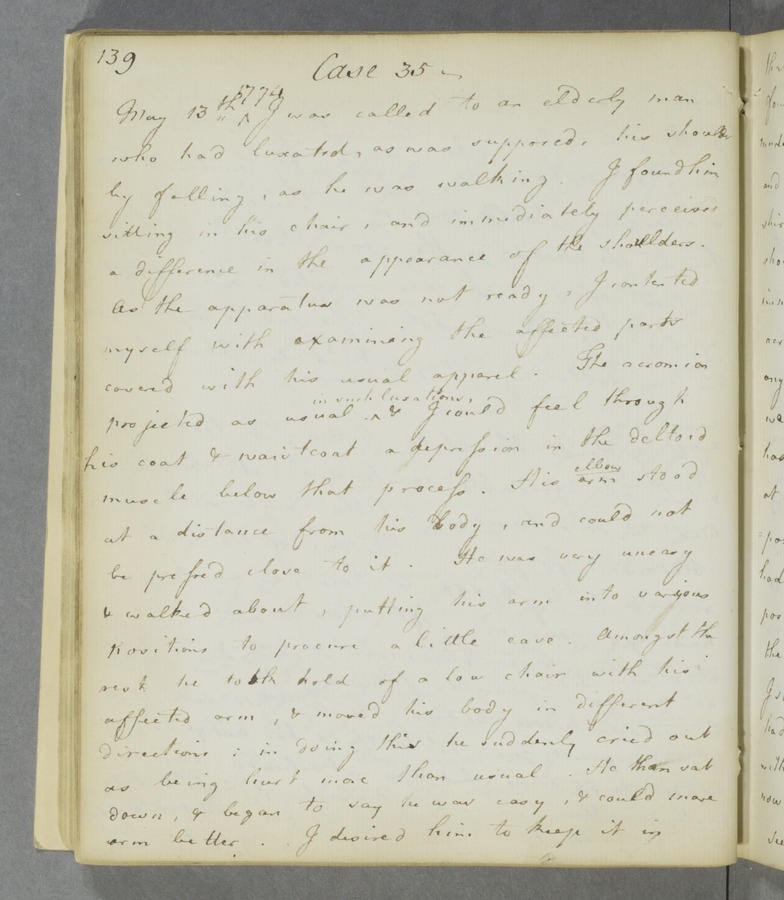 139
Case 35
May 13th 1774 I was called to an elderly man
who had luxated, as was supposed, his shoulder
by falling, as he was walking. I found him
sitting in his chair, and immediately perceived
a difference in the appearance of the shoulders.
As the apparatus was not ready, I contented
myself with examining the affected parts
covered with his usual apparel. The acromion
in such luxations,
projected as usual ^ & I could feel through
his coat & waistcoat a depression in the deltoid
elbow
muscle below that process. His arm stood
at a distance from his body, and could not
be pressed close to it. He was very uneasy
& walked about, putting his arm into various
positions to procure a little ease. Amongst the
rest he took hold of a low chair with his
affected arm, & moved his body in different
directions; in doing this he suddenly cried out
as being hurt more than usual. He then sat
down, & began to say he was easy, & could move
arm better. I desired him to keep it in